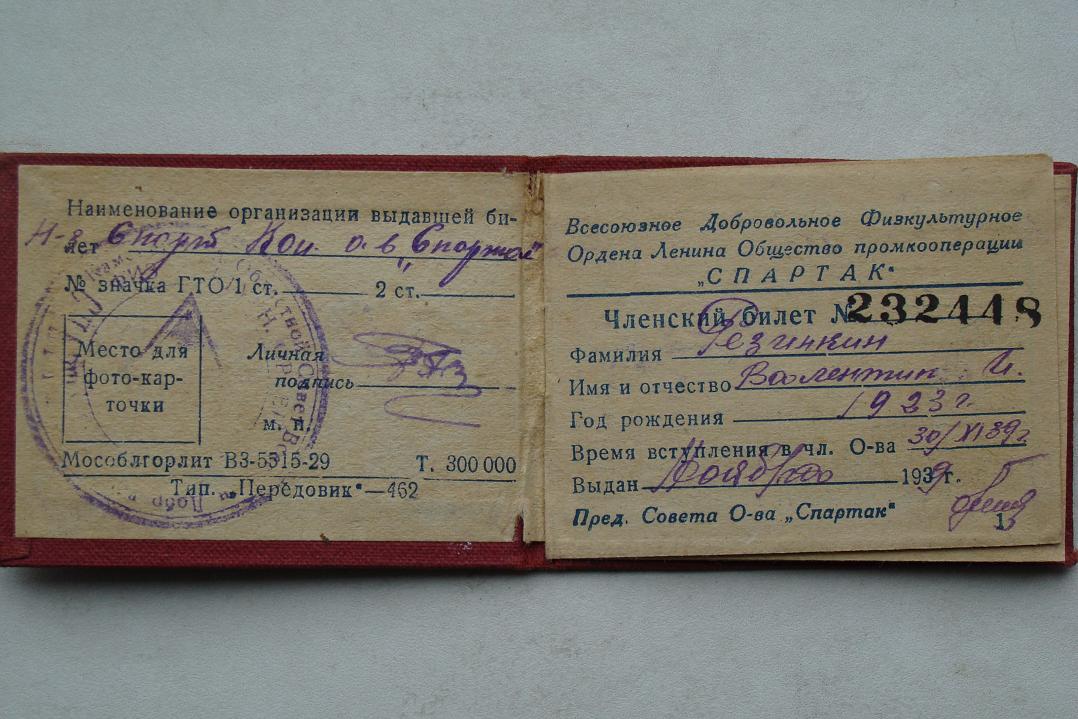 Наименование организации выдавшей би-
лет Спорт о-в „Спартак"
№ значка ГТО 1 ст. 2 ст.
Место для
фото-кар-
точки
Личная
подпись
м. п.
Мособлгорлит В3-5515-29 Т. 300 000
Тип. „Передовик"—462
Всесоюзное Добровольное Физкультурное
Ордена Ленина Общество промкооперации
„СПАРТАК"
Членский билет № 232448
Фамилия Резинкин
Имя и отчество Валентин И.
Год рождения 1923 г.
Время вступления в чл. О-ва 30/XI 39 г
Выдан Ноября 1939 г.
Пред. Совета О-ва „Спартак"
1